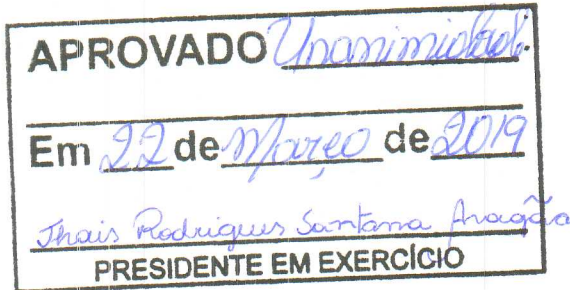 APROVADO Unanimidade.
Em 22 de Março de 2019
Thais Rodrigues Santana Aragão
PRESIDENTE EM EXERCÍCIO